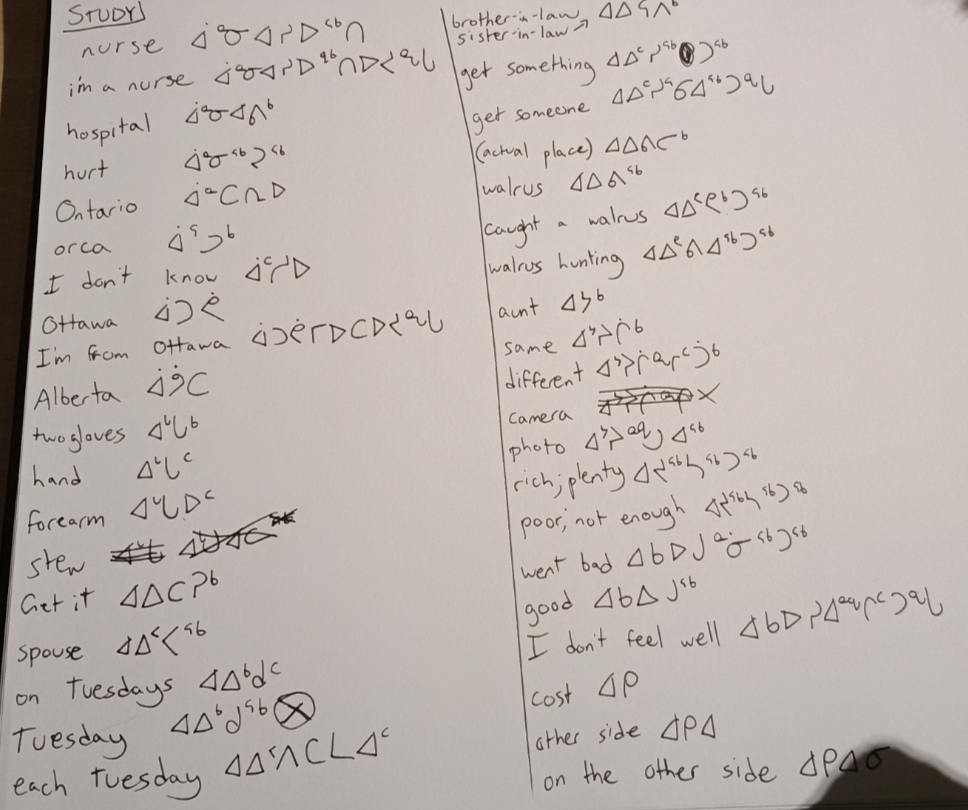 STUDY
nurse ᐋᓐᓂᐊᓯᐅᖅᑎ
i'm a nurse ᐋᓐᓂᐊᓯᐅᖅᑎᐅᔪᖓ
hospital ᐋᓐᓂᐊᕕᒃ
hurt ᐋᓐᓂᖅᑐᖅ
Ontario ᐋᓐᑕᑎᐅ
orca ᐋᕐᓗᒃ
I don't know ᐋᑦᓯᐅ
Ottawa ᐋᑐᕚ
I'm from Ottawa ᐋᑐᕚᒥᐅᑕᐅᔪᖓ
Alberta
two gloves ᐊᒡᒐᒃ
hand ᐊᒡᒐᑦ
forearm ᐊᒡᒐᐅᑦ
stew
Get it ᐊᐃᑕᕈᒃ
spouse ᐊᐃᑉᐸᖅ
on Tuesdays ᐊᐃᒃᑯᑦ
Tuesday ᐊᐃᒃᑯᖅ
each Tuesday ᐊᐃᑉᐱᑕᒪᐊᑦ
brother-in-law ᐊᐃᕋᐱᒃ
sister-in-law
get something ᐊᐃᑦᓯᖅᑐᖅ
get someone ᐊᐃᑦᓯᕆᐊᖅᑐᖓ
(actual place) ᐊᐃᕕᓕᒃ
walrus ᐊᐃᕕᖅ
caught a walrus ᐊᐃᕝᕕᒃᑐᖅ
walrus hunting ᐊᐃᕝᕕᐊᖅᑐᖅ
aunt ᐊᔭᒃ
same ᐊᔾᔨᒌᒃ
different ᐊᔾᔨᒌᙱᑦᑑᒃ
camera
photo ᐊᔾᔨᙳᐊᖅ
rich; plenty ᐊᔪᖅᓴᖅᑐᖅ
poor; not enough ᐊᔪᖅᓴᖅᑐᖅ
went bad ᐊᑲᐅᒍᓐᓃᖅᑐᖅ
good ᐊᑲᐃᔪᖅ
I don't feel well ᐊᑲᐅᓯᐊᙱᑦᑐᖓ
cost ᐊᑭ
other side ᐊᑭᐊ
on the other side ᐊᑭᐊᓂ